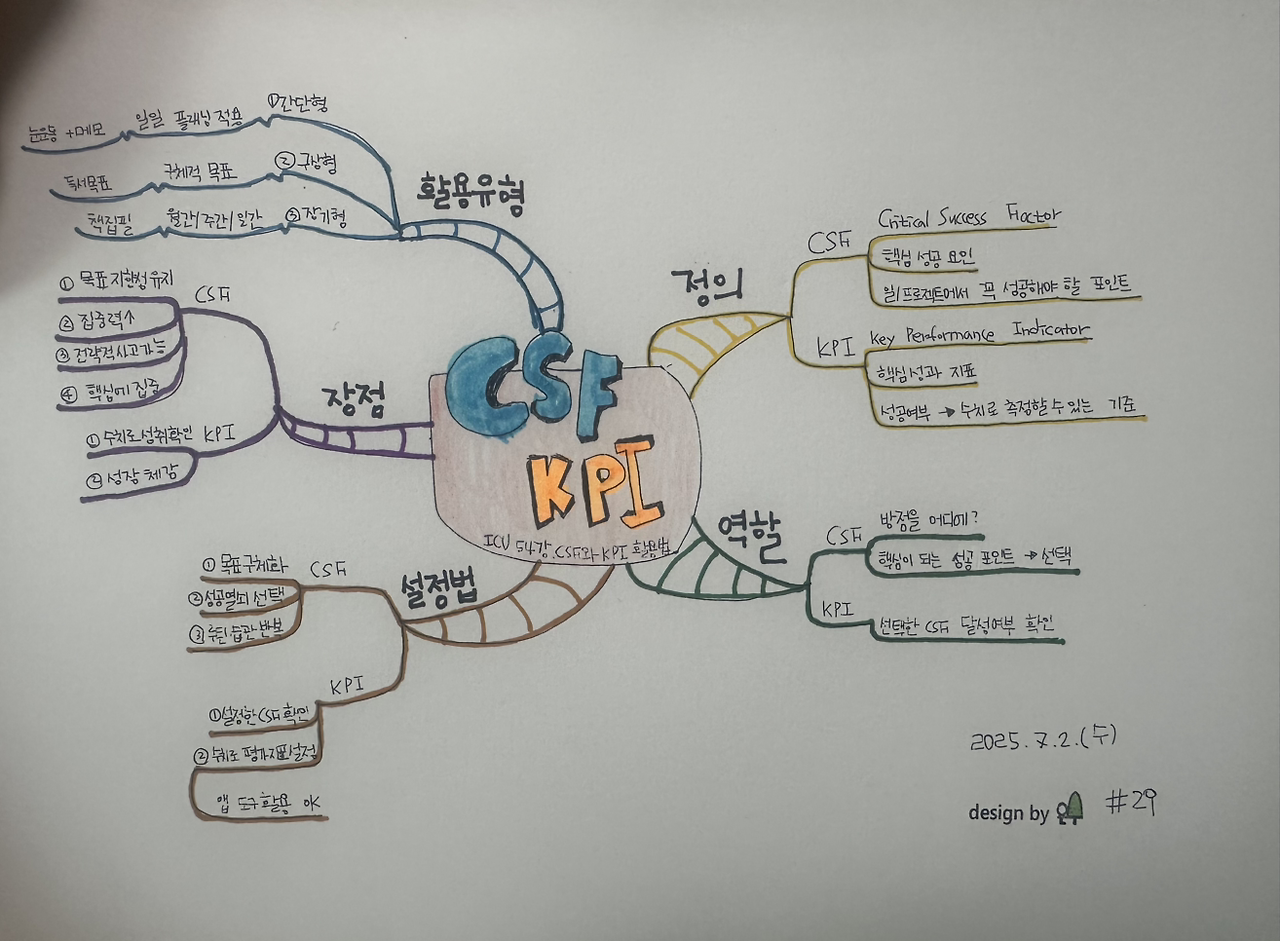 CSF
KPI
ICU 54강. CSF와 KPI 활용법
정의
CSF
Critical Success Factor
핵심 성공 요인
일/프로젝트에서 꼭 성공해야 할 포인트
KPI
Key Performance Indicator
핵심성과 지표
성공여부 → 수치로 측정할 수 있는 기준
역할
CSF
방점을 어디에?
핵심이 되는 성공 포인트 → 선택
KPI
선택한 CSF 달성여부 확인
설정법
CSF
① 목표 구체화
② 성공열쇠 선택
③ 루틴 습관 반복
KPI
① 설정한 CSF 확인
② 수치로 평가지표 설정
앱 도구 활용 OK
장점
CSF
① 목표 지향성 유지
② 집중력↑
③ 전략적사고가능
④ 핵심에 집중
KPI
① 수치로 성취확인
② 성장 체감
활용유형
① 간단형
일일 플래닝 적용
눈운동 + 메모
② 구상형
구체적 목표
독서목표
③ 장기형
월간/주간/일간
책집필
2025.7.2.(수)
design by
#29